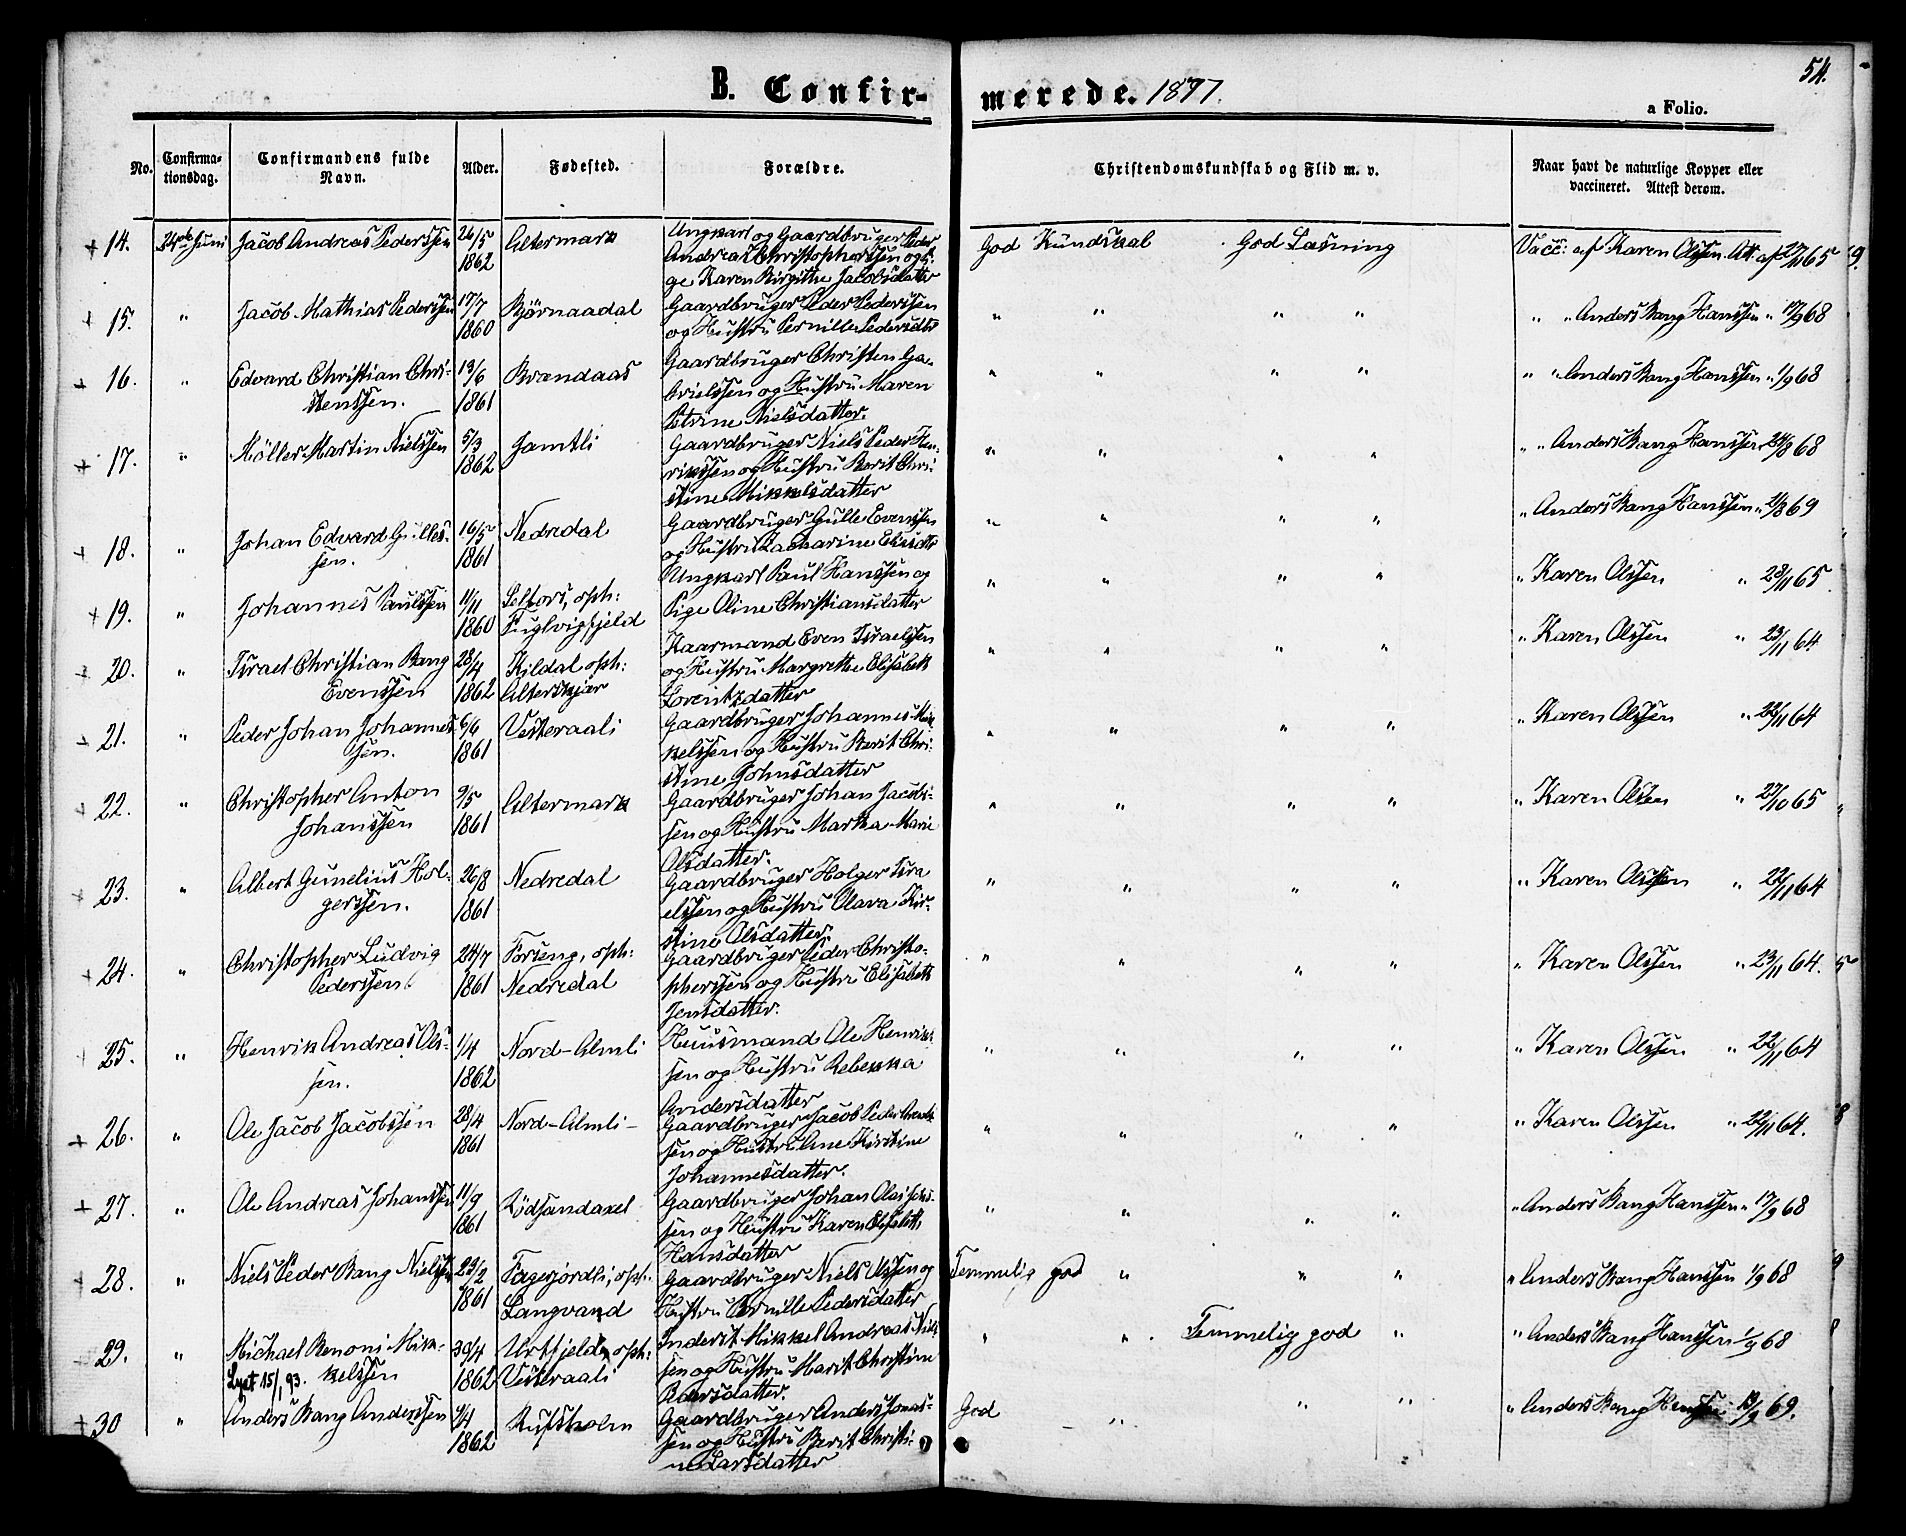 54.
B. Confir- merede. 1877.
a Folio.
No. Confirma-tionsdag. Confirmandens fulde Navn. Alder. Fødested. Forældre. Christendomskundskab og Flid m. v. Naar havt de naturlige Kopper eller vaccineret. Attest derom.
+ 14. 24de Juni Jacob Andreas Pederssen 26/5 1862 Altermark Ungkarl og Gaardbruger Peder
Andreas Christopherssen og Pi-
ge Karen Birgithe Jacobsdatter
God Kundskab God Læsning Vacc: af Karen Olssen Att. af 65
+ 15. " Jacob Mathias Pederssen 17/7 1860 Bjørnaadal Gaardbruger Peder Pederssen
og Hustru Pernille Pedersdtr
" " " " " " Anders Bang Hanssen " 17/9 68
+ 16. " Edvard Christian Chri-
stenssen. 13/6 1861 Brændaas Gaardbruger Christen Ga-
brielssen og Hustru Maren
Petrine Nielsdatter.
" " " " " " Anders Bang Hanssen " 1/9 68
+ 17. " Møller Martin Nielssen 5/3 1862 Jamtli Gaardbruger Niels Peder Hen-
rikssen og Hustru Berit Chri-
stine Mikkelsdatter
" " " " " " Anders Bang Hanssen 24/8 68
+ 18. " Johan Edvard Gulles-
sen. 16/5 1861 Nedredal Gaardbruger Gulle Evenssen
og Hustru Zacharine
" " " " " Anders Bang Hanssen " 69
+ 19. " Johannes Paulssen 11/11 1860 Selfors, oph:
Fuglvigfjeld Ungkarl Paul Hanssen og
Pige Oline Christiansdatter
" " " " " Karen Olssen " 28/11 65
+ 20. " Israel Christian Bang
Evenssen 28/4 1862 Kildal oph:
Alterskjær Kaarmand Even Israelssen
og Hustru Margrethe Elisabeth
Lorentzdatter
" " " " " Karen Olssen " 23/11 64
+ 21. " Peder Johan Johannes-
sen. 6/6 1861 Vesteraali Gaardbruger Johannes Mik-
kelssen og Hustru Berit Chri-
stine Johnsdatter
" " " " " Karen Olssen " 26/11 64
22. " Christopher Anton
Johanssen 9/5 1861 Altermark Gaardbruger Johan Jacobs-
sen og Hustru Martha Marie
Olsdatter.
" " " " " Karen Olssen " 27/10 65
+ 23. " Albert Gunelius Hol-
gerssen. 26/8 1861 Nedredal Gaardbruger Holger Isra
elssen og Hustru Olava Kir-
stine Olsdatter.
" " " " " Karen Olssen " 22/11 64
+ 24. " Christopher Ludvig
Pederssen 24/7 1861 Forseng, oph:
Nedredal Gaardbruger Peder Christo-
pherssen og Hustru Elisabeth
Jensdatter.
" " " " " Karen Olssen " 23/11 64.
+ 25. " Henrik Andreas Ols-
sen. 1/4 1862 Nord-Almli Huusmand Ole Henriks-
sen og Hustru Rebekka
Andersdatter
" " " " " Karen Olssen " 22/11 64
+ 26. " Ole Jacob Jacobssen 28/4 1861 Nord-Almli Gaardbruger Jacob Peder
sen og Hustru Ane Kirstine
Johannesdatter.
" " " " " Karen Olssen " 22/11 64.
+ 27. " Ole Andreas Johanssen 11/9 1861 Rödsandaxel Gaardbruger Johan
sen og Hustru Karen Elisabeth
Hansdatter
" " " " " Anders Bang Hanssen " 17/9 68
+ 28. " Niels Peder Bang Nielssen 23/2 1861 Fagerjordli, oph:
Langvand Gaardbruger Niels Olssen og
Hustru Pernille Pedersdatter
Temmelig god " " " " Anders Bang Hanssen 1/9 68
29. " Michael Benoni Mik-
kelssen
Lyst 15/1 93. 30/4 1862 Urtfjeld, oph:
Vesteraali Inderst Mikkel Andreas Niels
sen og Hustru Marit Christine
" " Temmelig god " " Anders Bang Hanssen 1/9 68
+ 30 " Anders Bang Anderssen 4/4 1862 Rufsholm Gaardbruger Anders Jonas-
sen og Hustru Berit Christi-
ne Larsdatter
God " " " " Anders Bang Hanssen 69.